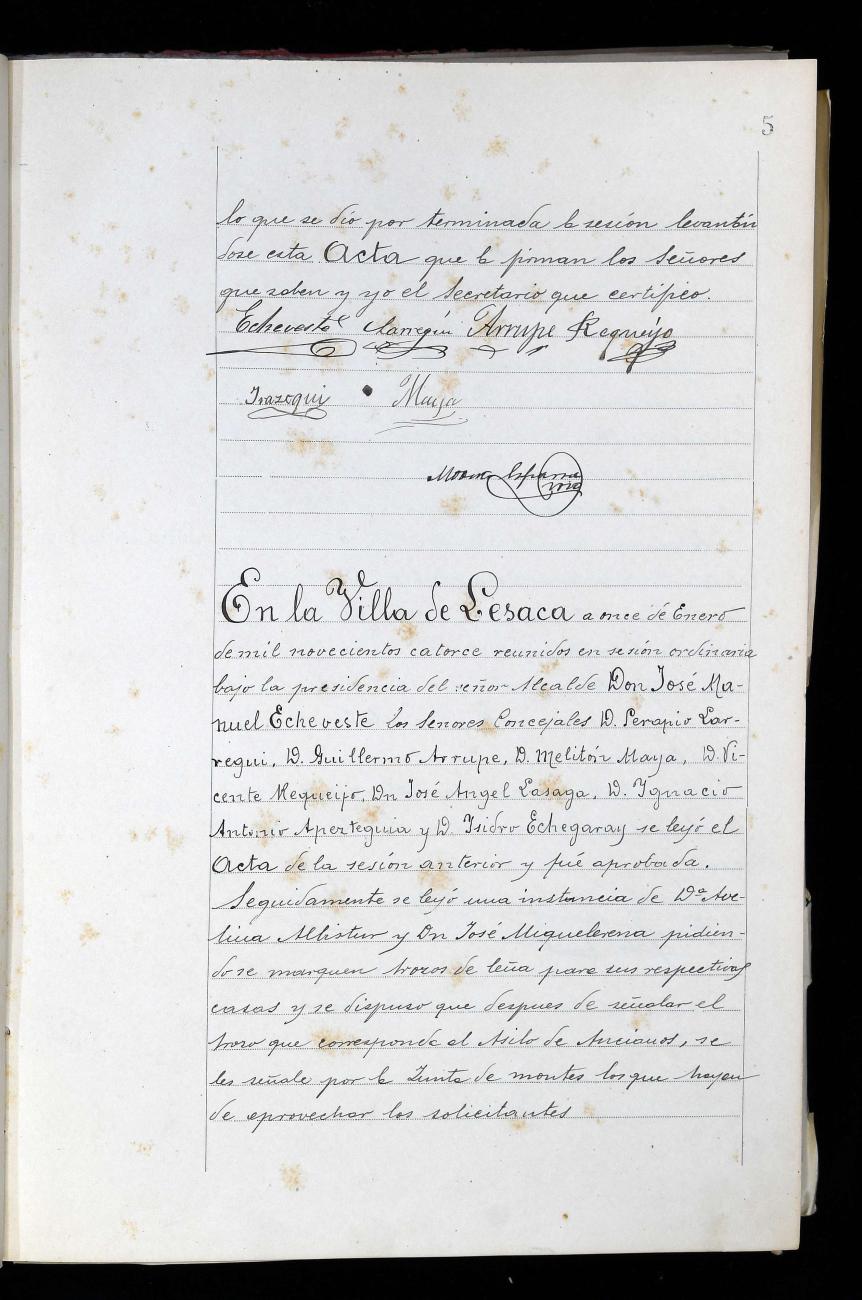 5
lo que se dió por terminada la sesión levantán
dose esta Acta que la firman los Señores
que saben y yo el Secretario que certifico.
Echeveste Larregui Arrupe Requeijo
Irazoqui Maya
Esparza
En la Villa de Lesaca a once de Enero
de mil novecientos catorce reunidos en sesión ordinaria
bajo la presidencia del señor Alcalde Don José Ma-
nuel Echeveste los Señores Concejales D. Serapio Lar-
regui, D. Guillermo Arrupe, D. Melitón Maya, D. Vi-
cente Requeijo, Dn José Angel Lasaga, D. Ygnacio
Antonio Apezteguia y D. Isidro Echegaray se leyó el
Acta de la sesión anterior y fué aprobada.
Seguidamente se leyó una instancia de Dª Ave-
lina Albistur y Dn José Miquelerena pidien-
do se marquen trozos de leña para sus respectivas
casas y se dispuso que despues de señalar el
trozo que corresponde al Asilo de Ancianos, se
les señale por la Junta de montes los que hayan
de aprovechar los solicitantes